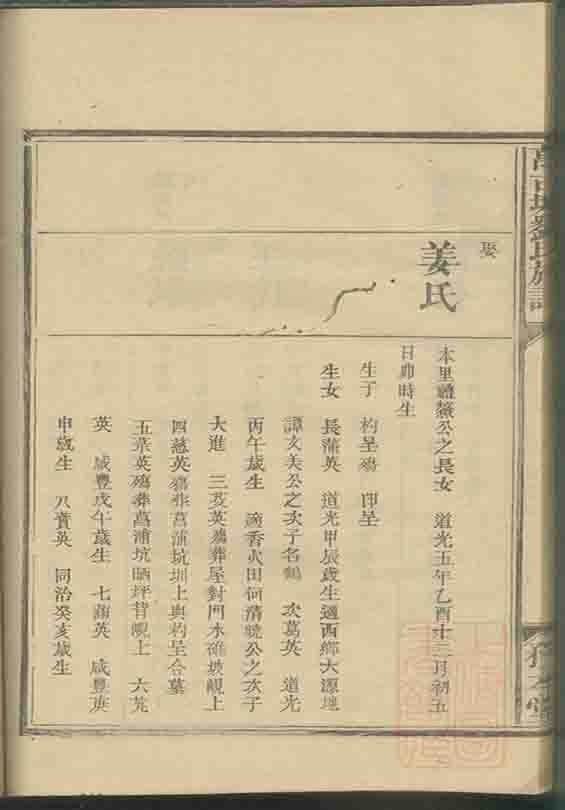 劉氏族譜
娶
姜氏
本里 公之長女 道光五年乙酉十二月初五
日卯時生
生子 杓呈殤 即呈
生女 長蒲英 道光甲辰歲生適西鄉大源 
譚文美公之次子名鶴 次葛英 道光
丙午歲生 適香火田何清 公之次子
大進 三芟英殤葬屋對門水碓坡峴上
四慈英殤葬菖蒲坑圳上與杓呈合墓
五萃英殤葬菖蒲坑晒坪背峴上 六芄
英 咸豐戊午歲生 七蘭英 咸豐庚
申歲生 八 英 同治癸亥歲生